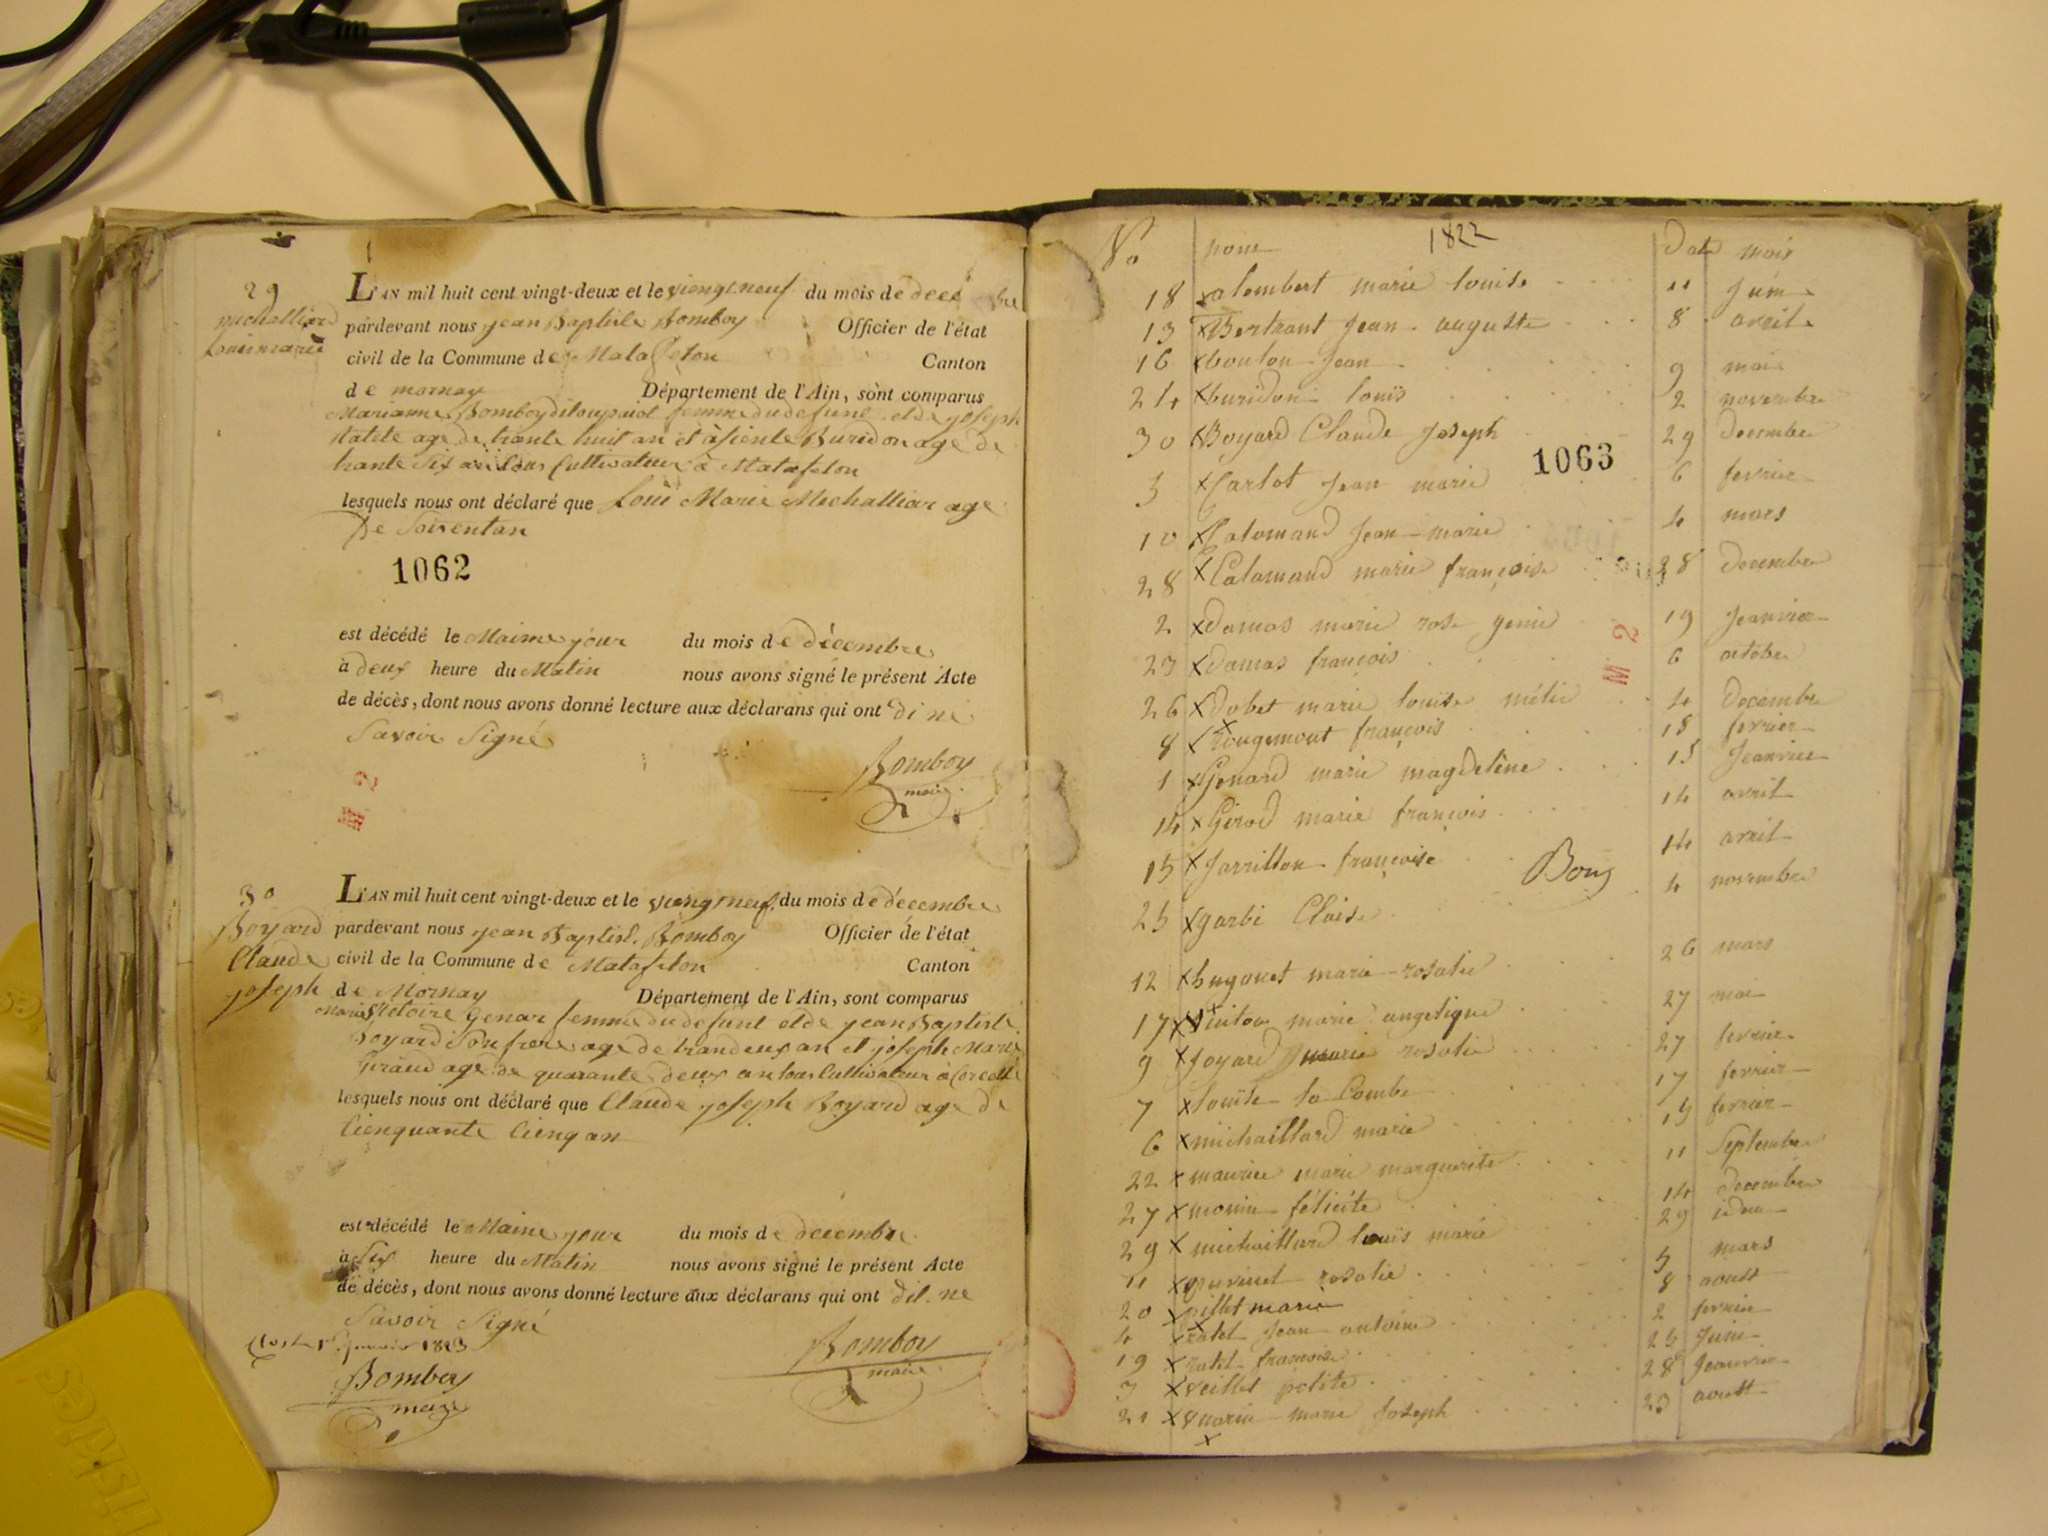 29
michalliard
Louis marie
L'AN mil huit cent vingt-deux et le viengt neuf du mois de decembre
pardevant nous jean Baptiste Bomboy Officier de l'état
civil de la Commune de Matafelon Canton
de mornay Département de l'Ain, sont comparus
Mariame Bomboy femme du defunt et de joseph
age de trante huit an et Buridon age de
trante Six an tous Cultivateur a Matafelon
lesquels nous ont déclaré que Loui Marie Michalliar age
De Soisentan
1062
est décédé le Maime jour du mois de décembre
à deux heure du Matin nous avons signé le présent Acte
de décès, dont nous avons donné lecture aux déclarans qui ont di ne
Savoir Signé
Bomboy
maire
M 2
30
Boyard
Claude
joseph
L'AN mil huit cent vingt-deux et le viengt neuf du mois de décembre
pardevant nous jean Baptist. Bomboy Officier de l'état
civil de la Commune de Matafelon Canton
de Mornay Département de l'Ain, sont comparus
Marie Genar femme du defunt et de jean Baptiste
Boyard Son frere age de trandeux an et joseph Marie
Giraud age de quarante deux an tous Cultivateur a
lesquels nous ont déclaré que Claude joseph Boyard age de
Cienquante Cienq an
est décédé le Maime jour du mois de decembre
à Six heure du Matin nous avons signé le présent Acte
de décès, dont nous avons donné lecture aux déclarans qui ont dil ne
Savoir Signé
Clos le 1er Janvier 1823
Bomboy
maire
Bomboy
maire
No nom 1822 Date mois
18 x alombert marie louise 11 Juin
13 x Bertrant Jean auguste 8 avril
16 x bouton Jean 9 mai
24 x buridon louis 2 novembre
30 x Boyard Claude Joseph 29 decembre
1063
5 x Carlot Jean marie 6 fevrier
10 x Calamand Jean marie 4 mars
28 x Calamand marie françoise 28 decembre
2 x damas marie rose genie 19 Jeanvier
23 x damas françois 6 octobre
M 2
26 x dobet marie louise mélie 4 decembre
8 x rougemont françois 18 fevrier
1 x Genard marie magdeleine 15 Jeanvier
14 x Girod marie françois 14 avril
15 x Jarrillon françoise 14 avril
Bouz
25 x garbi Claise 4 novembre
12 x hugonet marie rosalie 26 mars
17 x marie angelique 27 mai
9 x Joyard marie rosalie 27 fevrier
7 x louise la Combe 17 fevrier
6 x michaillard marie 15 fevrier
22 x maurice marie marguerite 11 Septembre
27 x monin félicité 14 decembre
29 x michaillard louis marie 29 idem
11 x rosalie 5 mars
20 x pillet marie 8 aoust
4 x ratel Jean antoine 2 fevrier
19 x ratel francoise 25 Juin
3 x reillet petite 28 Jeanvier
21 x marie Joseph 23 aoust
x